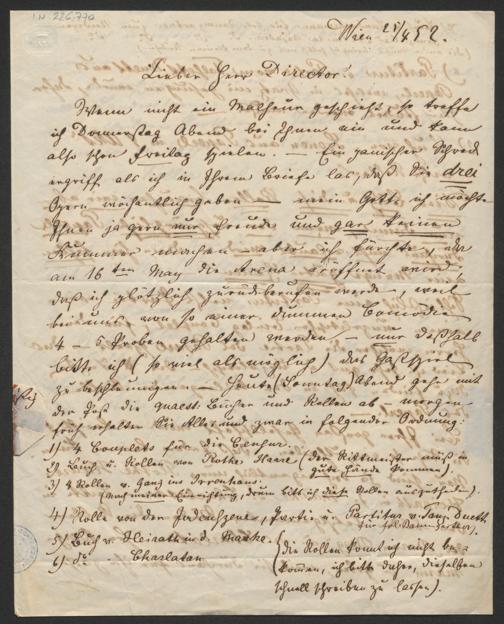 I.N. 226.770
Wien 25/4 52.
Lieber Herr Director!
Wenn nicht ein Malheur geschieht, so treffe
ich Donnerstag Abend bei Ihnen ein und kann
also schon Freitag spielen. — Ein panischer Schreck
ergriff als ich in Ihrem Briefe las, daß Sie drei
Opern wöchentlich geben — mein Gott, ich möchte
Ihnen ja gern nur Freude und gar keinen
Kummer machen — aber ich fürchte, da
am 16ten May die Arena eröffnet wird,
daß ich plötzlich zurückberufen werde, weil
bei uns von so einer dummen Comödie
4 – 5 Proben gehalten werden — nur deßhalb
bitte ich (so viel als möglich) das Gastspiel
zu beschleunigen. — Heute (Sonntag) Abend gehn mit
der Post die Bücher und Rollen ab — morgen
früh erhalten Sie Alles und zwar in folgender Ordnung:
1) 4 Couplets für die
2) Buch u. Rollen von Rothe Haare (der Rittmeister muß in
gute Hände kommen).
3) 4 Rollen v. Ganz
(nach meiner Einrichtung, drum bitt ich diese Rollen auszutheilen).
4) Rolle von der Judenscene, Partie u. Partitur v. Tanz Duett
für
5) Buch v. Heirath
6) do. Charlatan
(die Rollen konnt ich nicht be-
kommen, ich bitte daher, dieselben
schnell schreiben zu lassen).